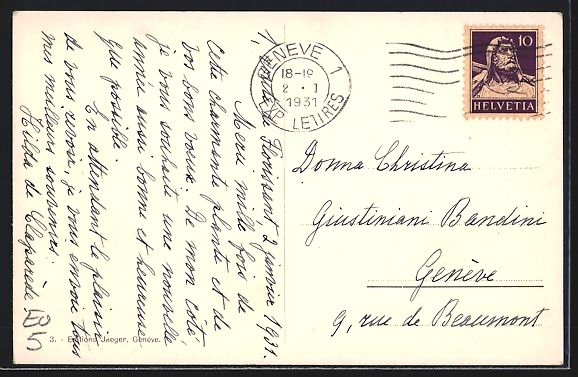 7, route de Florissant 2 janvier 1931.
Merci mille fois de
cette charmante plante et de
vos bons voeux. De mon côté
je vous souhaite une nouvelle
année aussi bonne et heureuse
que possible.
En attendant le plaisir
de vous revoir, je vous envoie tous
mes meilleurs souvenirs.
Hilda de Claparède
3. - Editions Jaeger, Genève.
GENÈVE 1
18-19
2 · I
1931
EXP. LETTRES
10
HELVETIA
Donna Christina
Giustiniani Bandini
Genève
9, rue de Beaumont